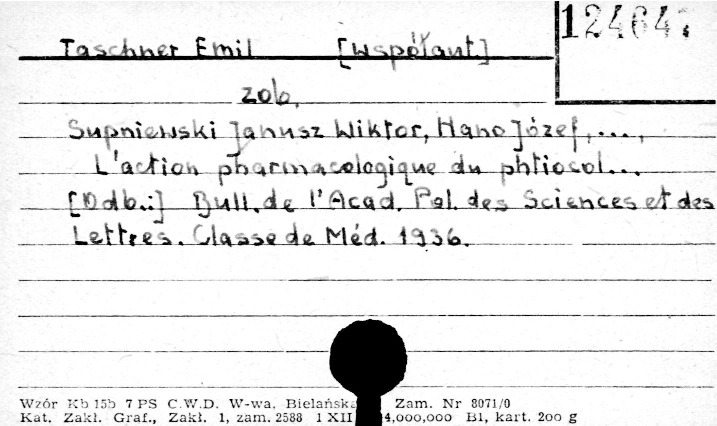 12464
Taschner Emil [Współaut.]
zob.
Supniewski Janusz Wiktor, Hano Józef, ...,
L'action pharmacologique du phtiocol...
[Odb.:] Bull. de l'Acad. Pol. des Sciences et des
Lettres. Classe de Méd. 1936.
Wzór Kb 15b 7 PS C.W.D. W-wa, Bielańska Zam. Nr 8071/0
Kat. Zakł. Graf., Zakł. 1, zam. 2588 1 XII 4,000,000 B1, kart. 200 g